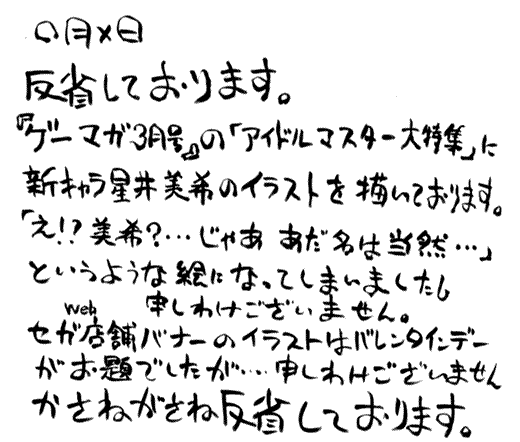 〇月×日
反省しております。
『ゲーマガ3月号』の「アイドルマスター大特集」に
新キャラ星井美希のイラストを描いております。
「え!?美希?…じゃあ あだ名は当然…」
というような絵になってしまいました。
申しわけございません。
セガ店舗webバナーのイラストはバレンタインデー
がお題でしたが…申しわけございません
かさねがさね反省しております。